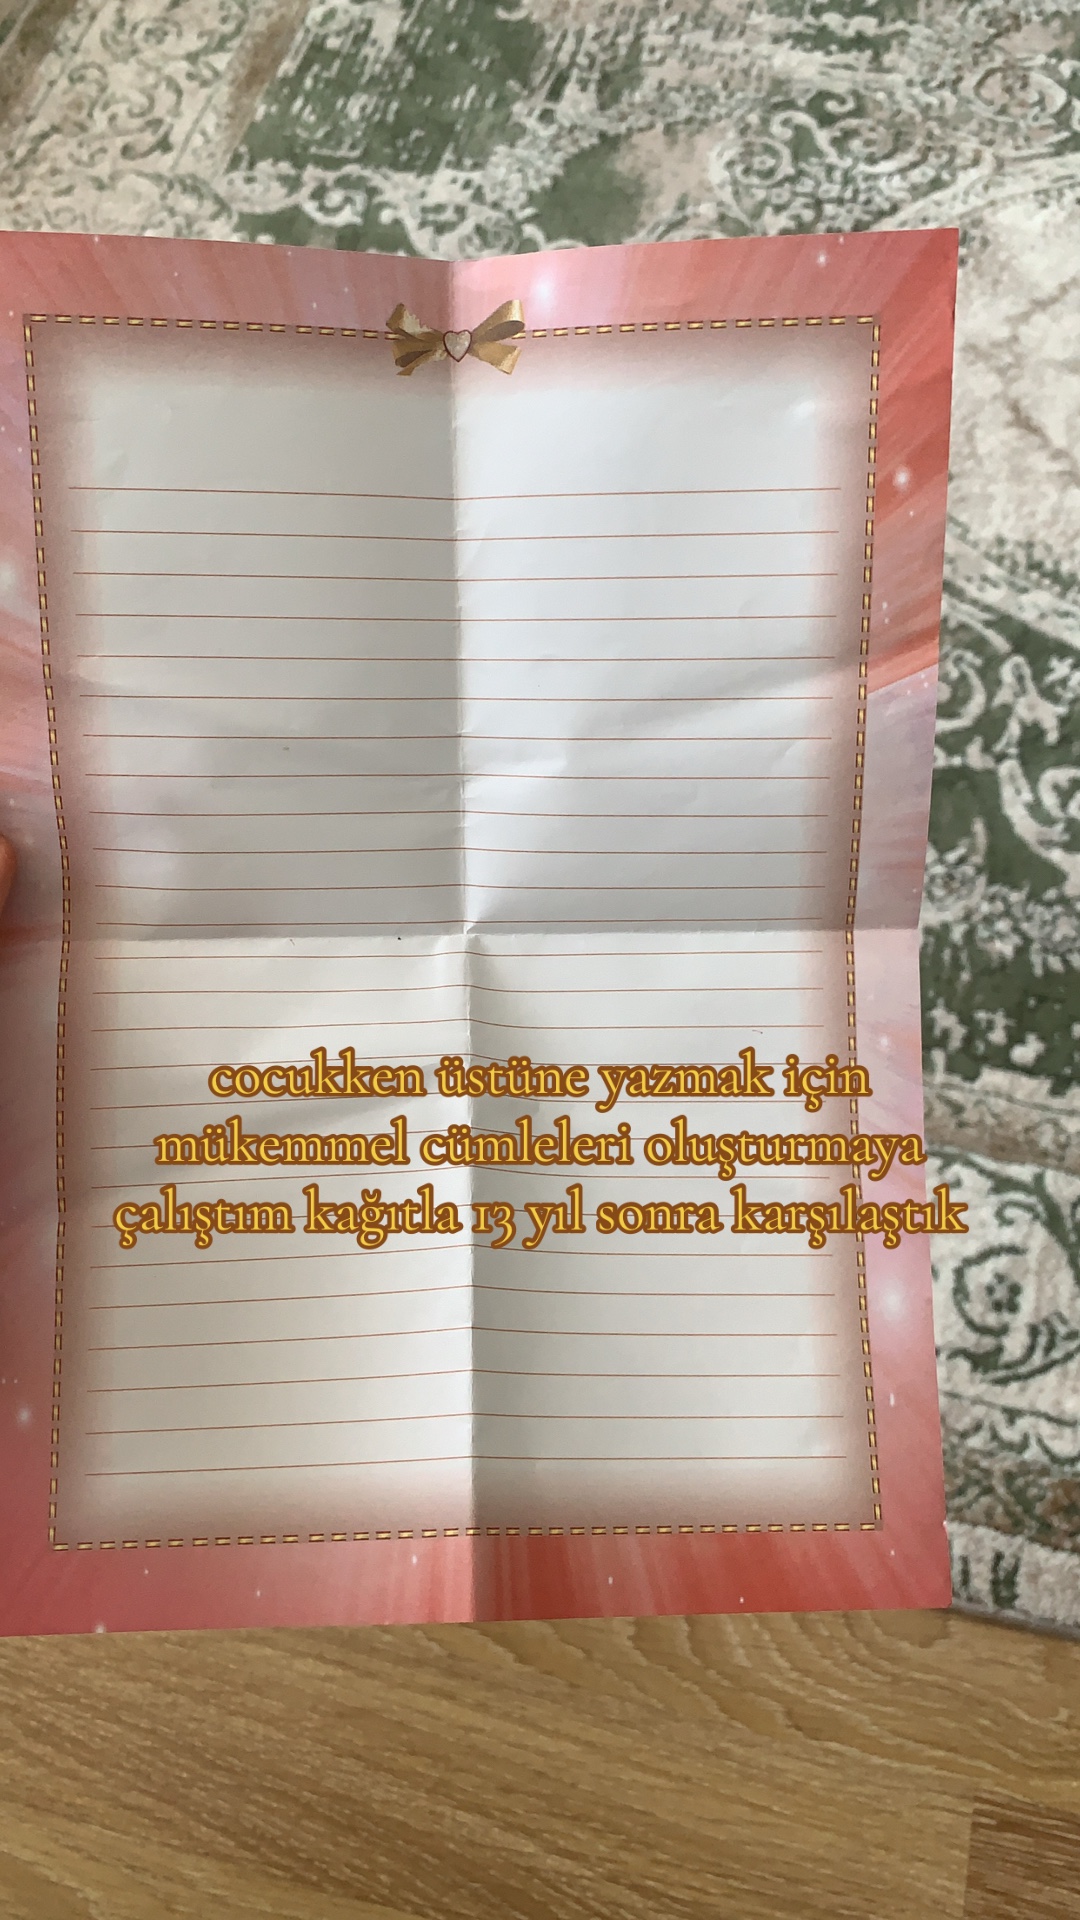 cocukken üstüne yazmak için
mükemmel cümleleri oluşturmaya
çalıştım kağıtla 13 yıl sonra karşılaştık